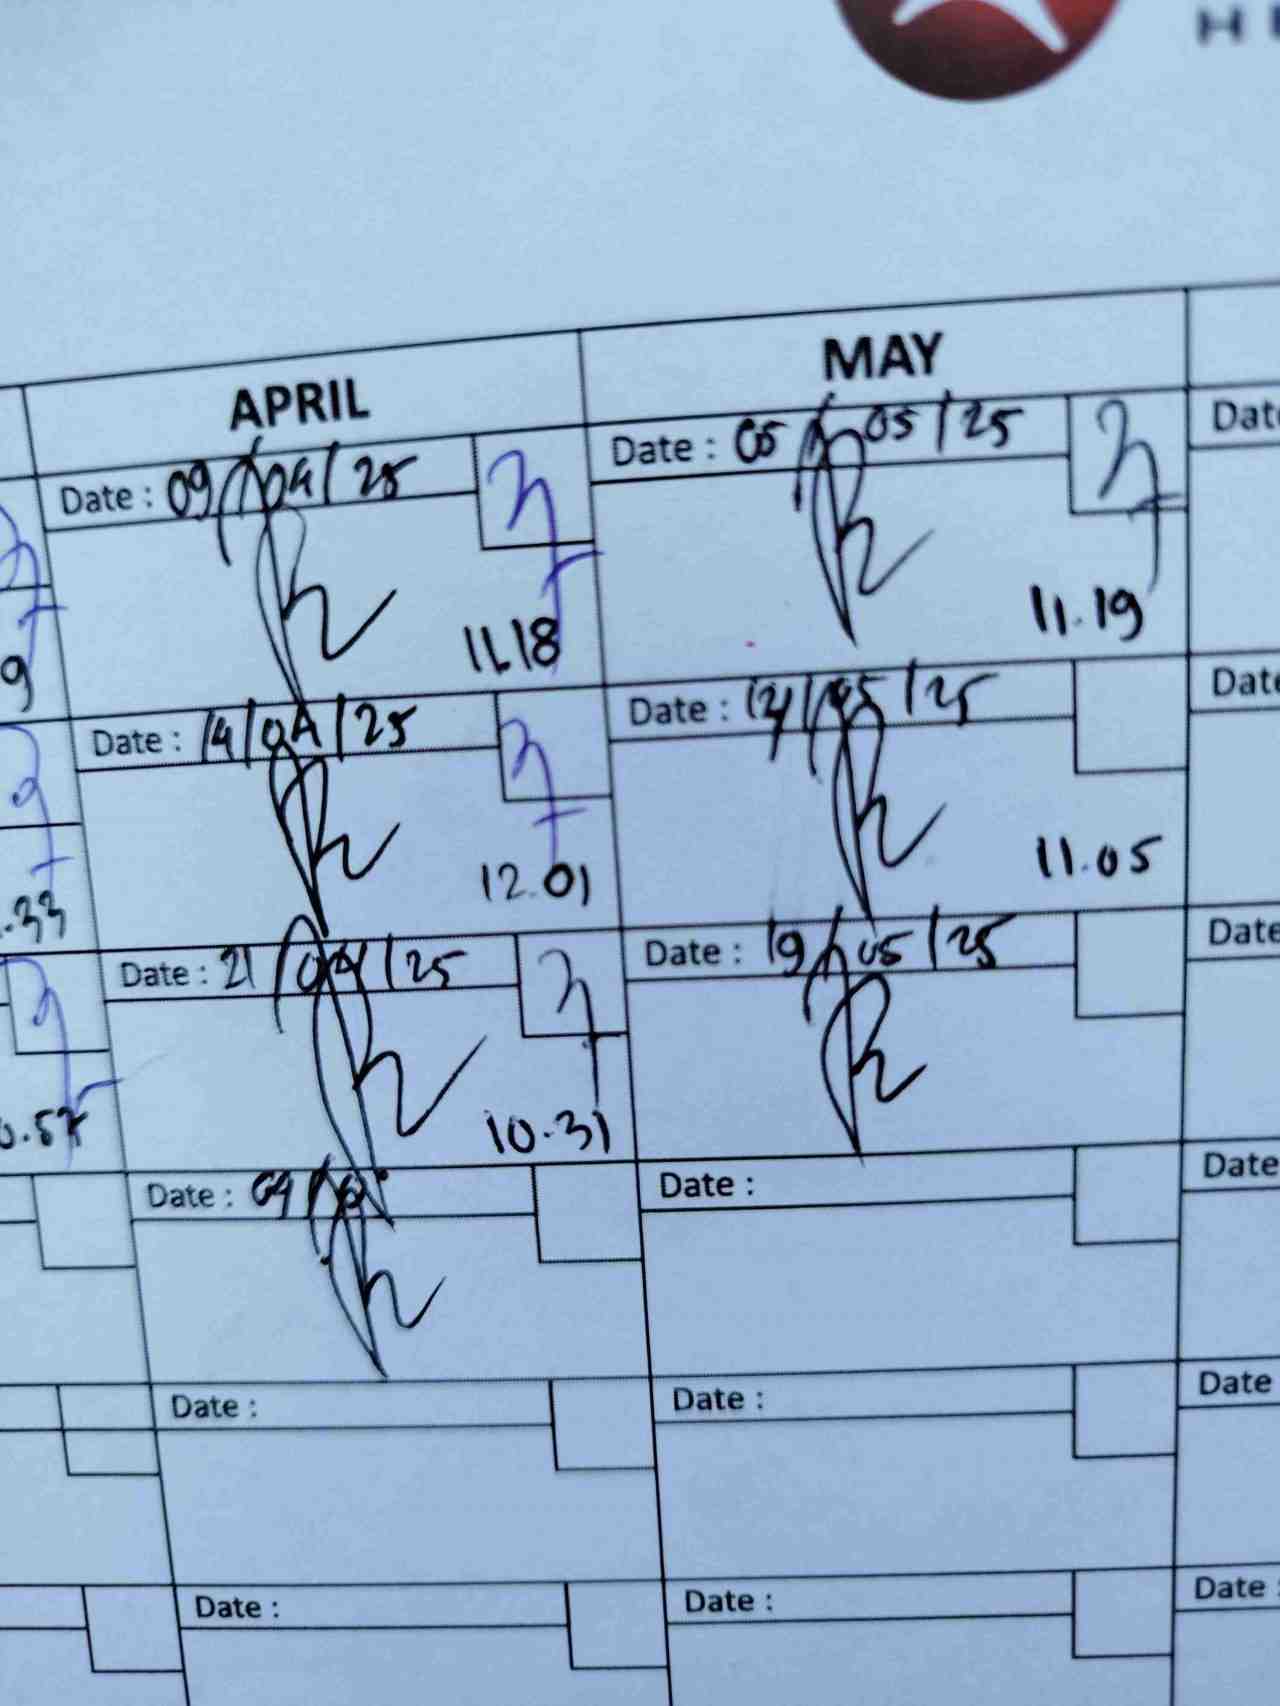 H
APRIL
MAY
Date : 09/04/25
Date : 05/05/25
Date
11.18
11.19
9
Date : 14/04/25
Date : 12/05/25
Date
12.01
11.05
.33
Date : 21/04/25
Date : 19/05/25
Date
10.31
0.57
Date :
Date :
Date
Date :
Date :
Date
Date :
Date :
Date :